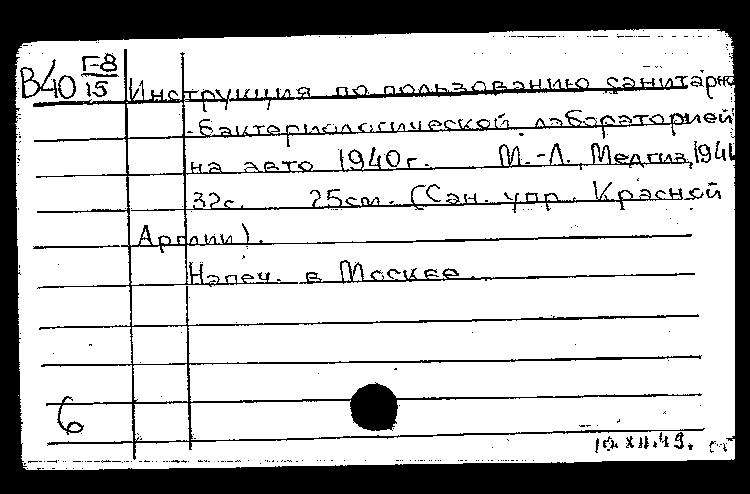 В40 Г-8/15
Инструкция по пользованию санитарно
-бактериологической лабораторией
на авто 1940 г. М.-Л., Медгиз, 194
32с. 25см. (Сан. упр. Красной
Армии).
Напеч. в Москве.
6
10.XII.49.